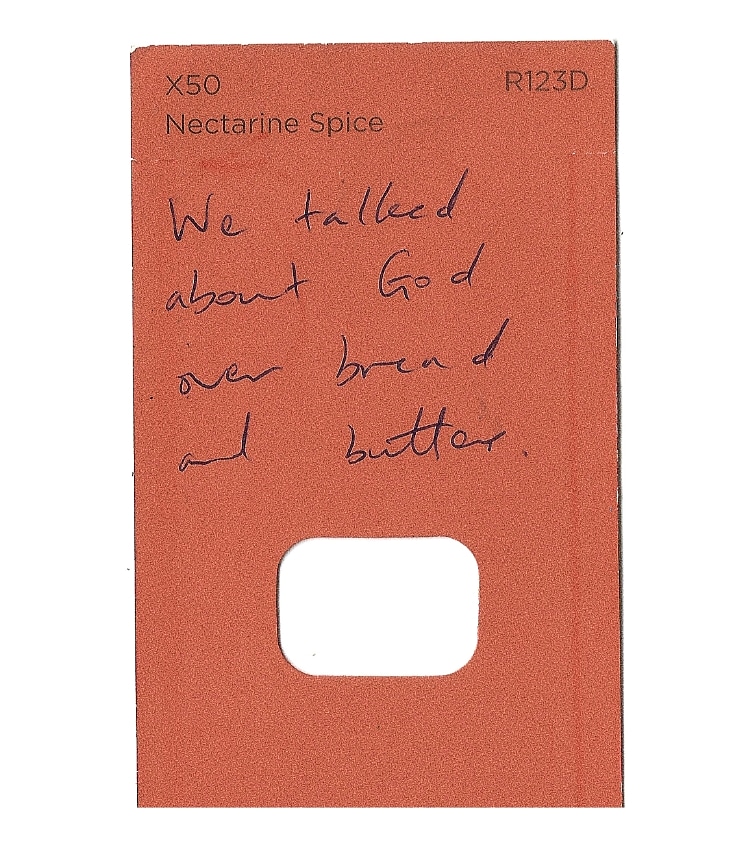 X50 R123D
Nectarine Spice
We talked
about God
over bread
and butter.